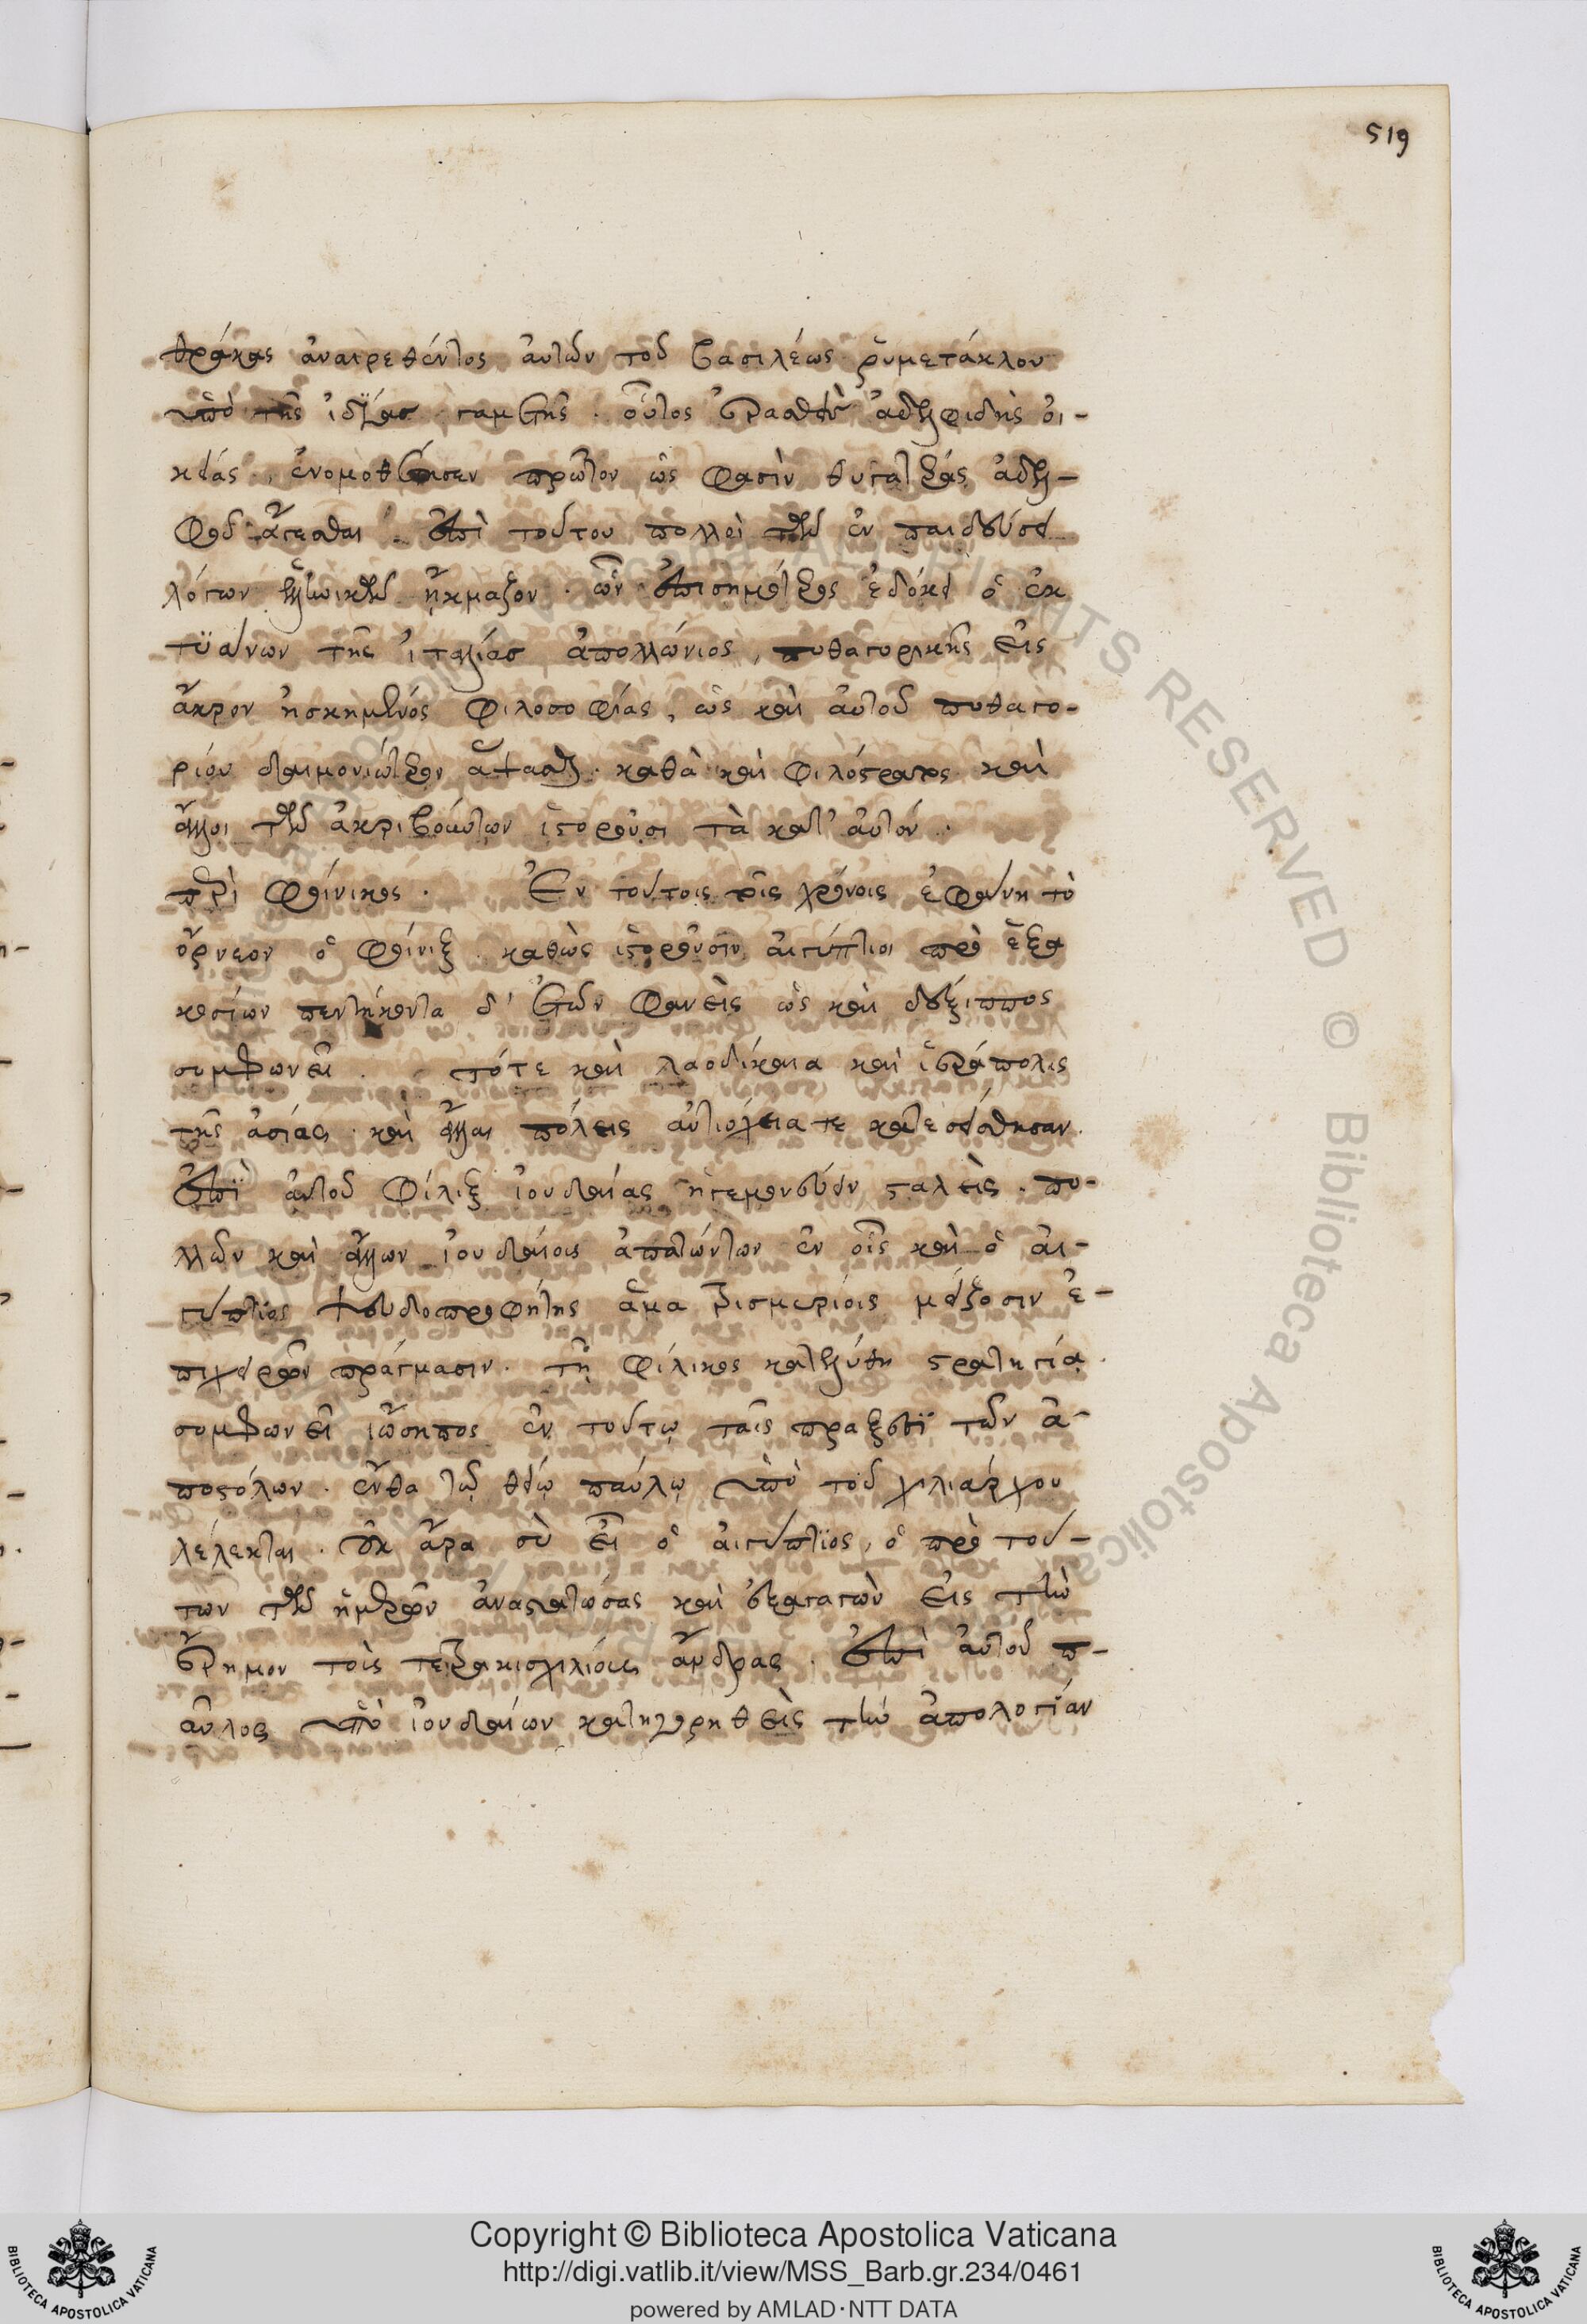 519
θράκας ἀναιρεθέντος αὐτῶν τοῦ βασιλέως ῥυμετάκλου
ὑπὸ τῆς ἰδίας γαμετῆς. οὗτος ἐρασθεὶς ἀδελφιδῆς οἰ-
κείας, ἐνομοθέτησεν πρῶτον ὡς φασὶν θυγατέρας ἀδελ-
φοῦ ἄγεσθαι. ἐπὶ τούτου πολλοὶ τῶν ἐν παιδεύσει
λόγων ἑλληνικῶν ἤκμαζον. ὧν ἐπισημότερος ἐδόκει ὁ ἐκ
τϋάνων τῆς ἰταλίας ἀπολλώνιος, πυθαγορικῆς εἰς
ἄκρον ἠσκημένος φιλοσοφίας, ὡς καὶ αὐτοῦ πυθαγο-
ρίου δαιμονιώτερον ἅψασθαι. καθὰ καὶ φιλόστρατος καὶ
ἄλλοι τῶν ἀκριβούντων ἱστοροῦσι τὰ κατ' αὐτόν.
περὶ φοίνικος. Ἐν τούτοις τοῖς χρόνοις ἐφάνη τὸ
ὄρνεον ὁ φοίνιξ. καθὼς ἱστοροῦσιν αἰγύπτιοι πρὸ ἑξα
κοσίων πεντήκοντα δ' ἐτῶν φανεὶς ὡς καὶ δέξιππος
συμφωνεῖ. τότε καὶ λαοδίκαια καὶ ἱεράπολις
τῆς ἀσίας. καὶ ἄλλαι πόλεις ἀντιόχεια τε κατεσείσθησαν.
ἐπὶ αὐτοῦ φίλιξ ἰουδαίας ἡγεμονεύειν σταλεὶς. πο-
λλῶν καὶ ἄλλων ἰουδαίοις ἀπατώντων ἐν οἷς καὶ ὁ αἰ-
γύπτιος ψευδοπροφήτης ἅμα τρισμυρίοις μείζοσιν ἐ-
πιχειρῶν πράγμασιν. τῇ φίλικος κατελύθη στρατηγίᾳ.
συμφωνεῖ ἰώσηπος ἐν τούτῳ ταῖς πράξεσϊ τῶν ἀ-
ποστόλων. ἔνθα τῷ θείῳ παύλῳ ὑπὸ τοῦ χιλιάρχου
λέλεκται. οὐκ ἄρα σὺ εἶ ὁ αἰγύπτιος, ὁ πρὸ τού-
των τῶν ἡμερῶν ἀναστατώσας καὶ ἐξαγαγὼν εἰς τὴν
ἔρημον τοὶς τετρακισχιλίους ἄνδρας. ἐπὶ αὐτοῦ π-
αῦλος ὑπὸ ἰουδαίων κατηγορηθεὶς τὴν ἀπολογίαν
Copyright © Biblioteca Apostolica Vaticana
http://digi.vatlib.it/view/MSS_Barb.gr.234/0461
powered by AMLAD·NTT DATA